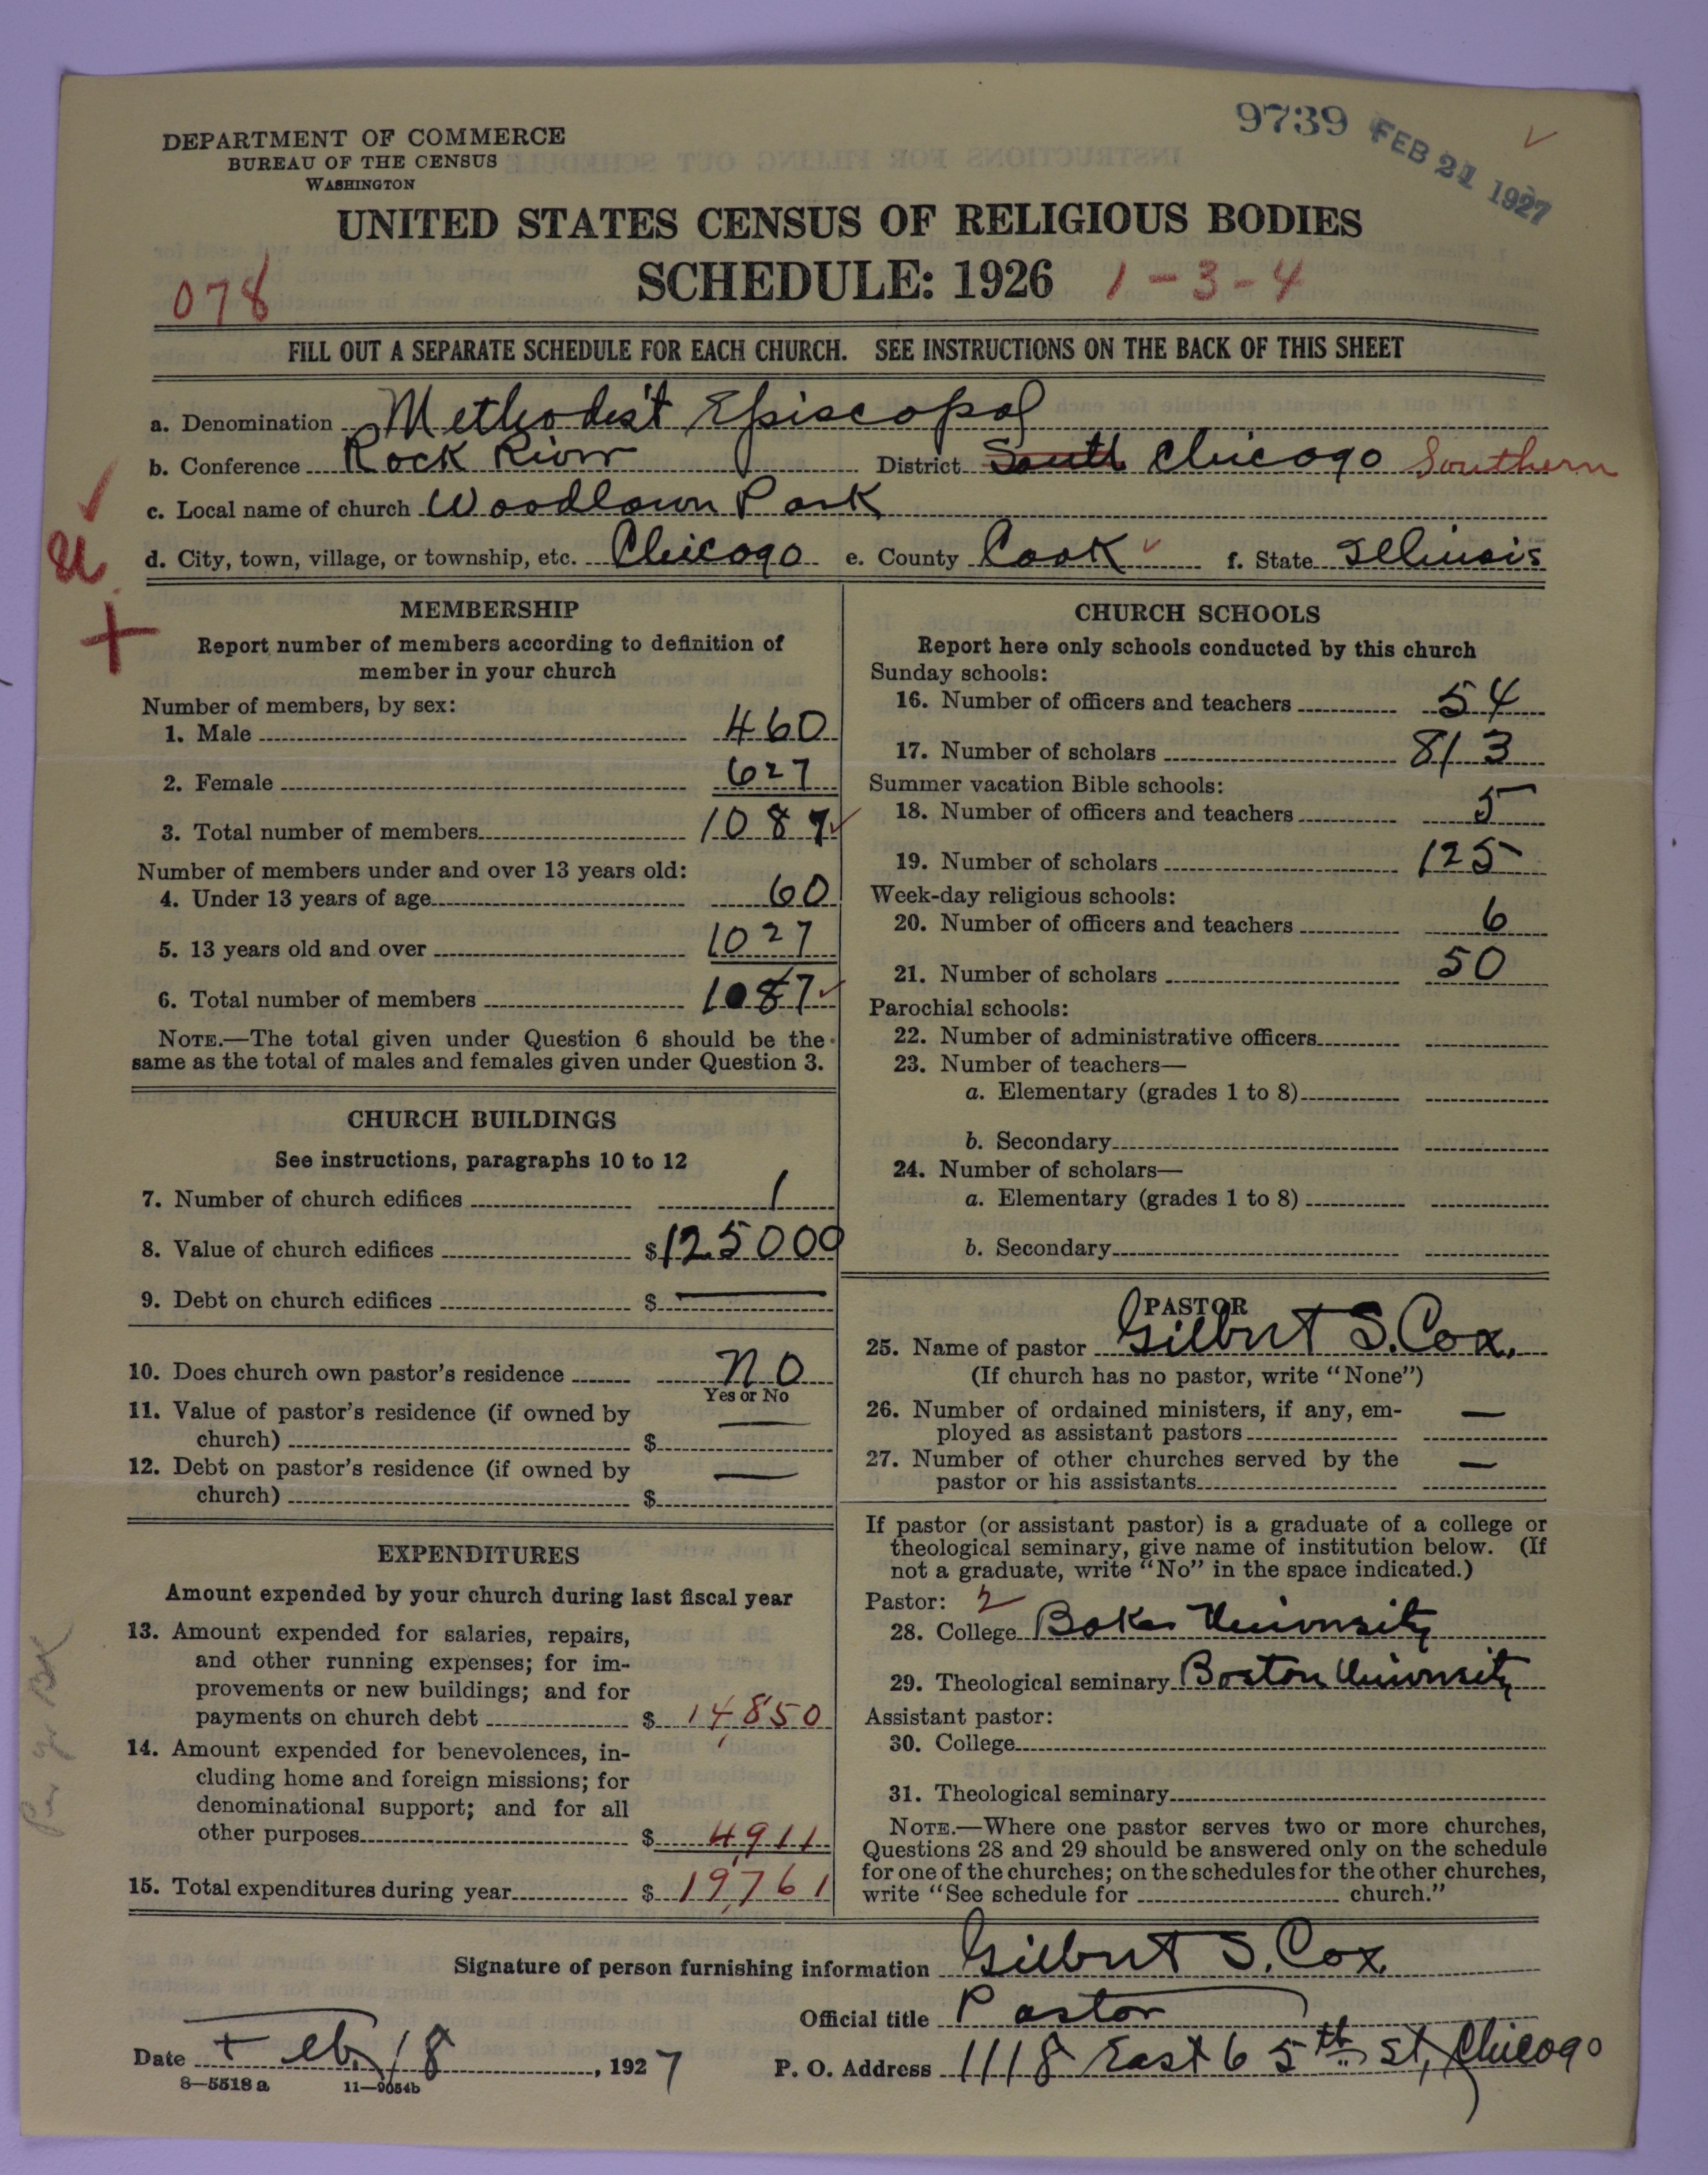 9739 FEB 21 1927
DEPARTMENT OF COMMERCE
BUREAU OF THE CENSUS
WASHINGTON
UNITED STATES CENSUS OF RELIGIOUS BODIES
SCHEDULE: 1926 1-3-4
078
FILL OUT A SEPARATE SCHEDULE FOR EACH CHURCH. SEE INSTRUCTIONS ON THE BACK OF THIS SHEET
a. Denomination Methodist Episcopal
b. Conference Rock River District South Chicago Southern
c. Local name of church Woodlawn Park
d. City, town, village, or township, etc. Chicago e. County Cook f. State Illinois
MEMBERSHIP
Report number of members according to definition of
member in your church
Number of members, by sex:
1. Male 460
2. Female 627
3. Total number of members 1087
Number of members under and over 13 years old:
4. Under 13 years of age 60
5. 13 years old and over 1027
6. Total number of members 1087
NOTE.—The total given under Question 6 should be the
same as the total of males and females given under Question 3.
CHURCH BUILDINGS
See instructions, paragraphs 10 to 12
7. Number of church edifices 1
8. Value of church edifices $125000
9. Debt on church edifices $ —
10. Does church own pastor's residence no
Yes or No
11. Value of pastor's residence (if owned by
church) $ —
12. Debt on pastor's residence (if owned by
church) $ —
EXPENDITURES
Amount expended by your church during last fiscal year
13. Amount expended for salaries, repairs,
and other running expenses; for im-
provements or new buildings; and for
payments on church debt $ 14,850
14. Amount expended for benevolences, in-
cluding home and foreign missions; for
denominational support; and for all
other purposes $ 4,911
15. Total expenditures during year $ 19,761
CHURCH SCHOOLS
Report here only schools conducted by this church
Sunday schools:
16. Number of officers and teachers 54
17. Number of scholars 813
Summer vacation Bible schools:
18. Number of officers and teachers 5
19. Number of scholars 125
Week-day religious schools:
20. Number of officers and teachers 6
21. Number of scholars 50
Parochial schools:
22. Number of administrative officers
23. Number of teachers—
a. Elementary (grades 1 to 8)
b. Secondary
24. Number of scholars—
a. Elementary (grades 1 to 8)
b. Secondary
PASTOR
25. Name of pastor Gilbert S. Cox.
(If church has no pastor, write "None")
26. Number of ordained ministers, if any, em-
ployed as assistant pastors —
27. Number of other churches served by the
pastor or his assistants —
If pastor (or assistant pastor) is a graduate of a college or
theological seminary, give name of institution below. (If
not a graduate, write "No" in the space indicated.)
Pastor: 2
28. College Baker University
29. Theological seminary Boston University
Assistant pastor:
30. College
31. Theological seminary
NOTE.—Where one pastor serves two or more churches,
Questions 28 and 29 should be answered only on the schedule
for one of the churches; on the schedules for the other churches,
write "See schedule for church."
Signature of person furnishing information Gilbert S. Cox
Official title Pastor
Date Feb. 18, 1927 P. O. Address 1118 East 65th St, Chicago
8—5518 a 11—9054b